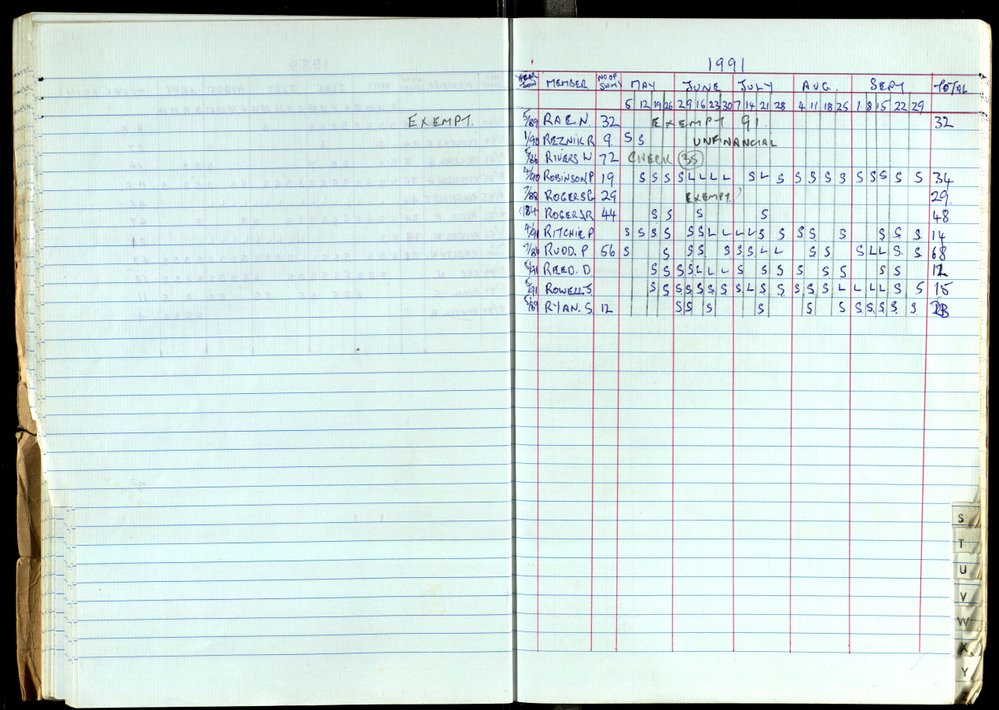 EXEMPT.
1991
YEAR JOIN MEMBER NO OF SWIMS MAY JUNE JULY AUG. SEPT TOTAL
5 12 19 26 2 9 16 23 30 7 14 21 28 4 11 18 25 1 8 15 22 29
5/89 RAE.N. 32 EXEMPT 91. 32
1/90 REZNIK R 9 S S UNFINANCIAL
5/86 RIVERS W 72 CHECK (35)
4/90 ROBINSON P 19 S S S S L L L L S L S S S S S S S S S S 34
7/88 ROGERS G 29 EXEMPT 29
1984 ROGERS R 44 S S S S 48
4/91 RITCHIE P S S S S S S L L L L S S S S S S S S 14
7/86 RUDD. P 56 S S S S S S L L S S S L L S S 68
5/91 REED. D S S S S L L L S S S S S S S 12
5/91 ROWELL S S S S S S S S S L S S S S S L L L L S S 15
5/89 RYAN. S 12 S S S S S S S S S S S
S
T
U
V
W
X
Y